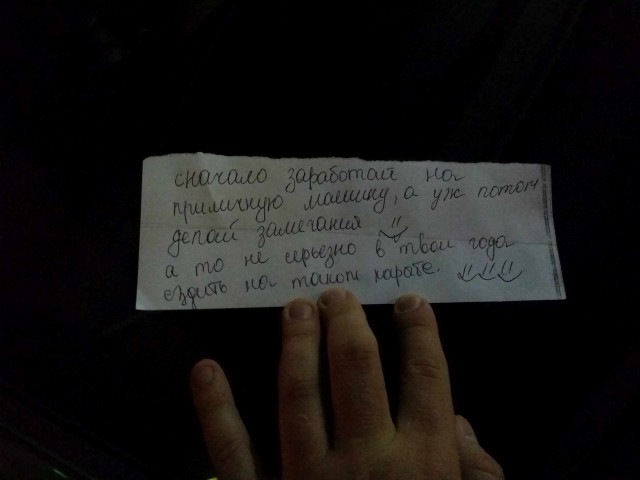 сначало заработай на
приличную машину, а уж потом
делай замечания
а то не серьезно в твои года
ездить на таком карыте.